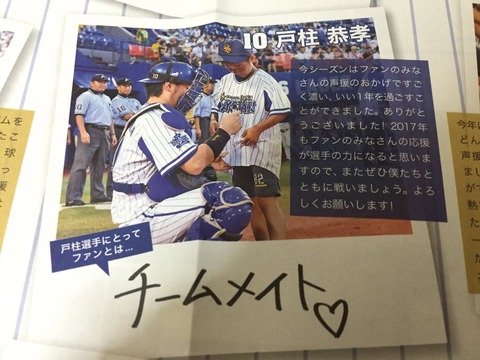 10 戸柱 恭孝
今シーズンはファンのみな
さんの声援のおかげですご
く濃い、いい1年を過ごすこ
とができました。ありがと
うございました!2017年
もファンのみなさんの応援
が選手の力になると思いま
すので、またぜひ僕たちと
ともに戦いましょう。よろ
しくお願いします!
戸柱選手にとって
ファンとは…
チームメイト♡